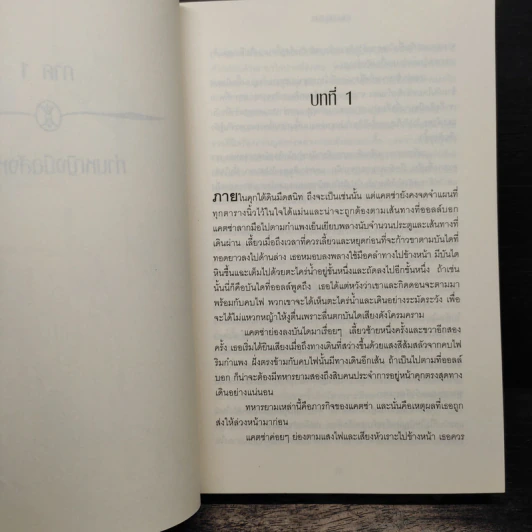 บทที่ 1
ภายในคุกใต้ดินมืดสนิท ถึงจะเป็นเช่นนั้น แต่แคตซ่ายังคงจดจำแผนที่
ทุกตารางนิ้วไว้ในใจได้แม่นและน่าจะถูกต้องตามเส้นทางที่ออลล์บอก
แคตซ่าลากมือไปตามกำแพงเย็นเยียบพลางนับจำนวนประตูและเส้นทางที่
เดินผ่าน เลี้ยวเมื่อถึงเวลาที่ควรเลี้ยวและหยุดก่อนที่จะก้าวขาตามบันไดที่
ทอดยาวลงไปด้านล่าง เธอหมอบลงพลางใช้มือคลำทางไปข้างหน้า มีบันได
หินชื้นแฉะเต็มไปด้วยตะไคร่น้ำอยู่ขั้นหนึ่งและถัดลงไปอีกขั้นหนึ่ง ถ้าเช่น
นั้นนี่ก็คือบันไดที่ออลล์พูดถึง เธอได้แต่หวังว่าเขาและกิดดอนจะตามมา
พร้อมกับคบไฟ พวกเขาจะได้เห็นตะไคร่น้ำและเดินอย่างระมัดระวัง เพื่อ
จะได้ไม่แหวกหญ้าให้งูตื่นเพราะลื่นตกบันไดเสียงดังโครมคราม
แคตซ่าย่องลงบันไดมาเรื่อยๆ เลี้ยวซ้ายหนึ่งครั้งและขวาอีกสอง
ครั้ง เธอเริ่มได้ยินเสียงเมื่อถึงทางเดินที่สว่างขึ้นด้วยแสงสีส้มสลัวจากคบไฟ
ริมกำแพง ฝั่งตรงข้ามกับคบไฟนั้นมีทางเดินอีกเส้น ถ้าเป็นไปตามที่ออลล์
บอก ก็น่าจะต้องมีทหารยามสองถึงสิบคนประจำการอยู่หน้าคุกตรงสุดทาง
เดินอย่างแน่นอน
ทหารยามเหล่านี้คือภารกิจของแคตซ่า และนั่นคือเหตุผลที่เธอถูก
ส่งให้ล่วงหน้ามาก่อน
แคตซ่าค่อยๆ ย่องตามแสงไฟและเสียงหัวเราะไปข้างหน้า เธอควร